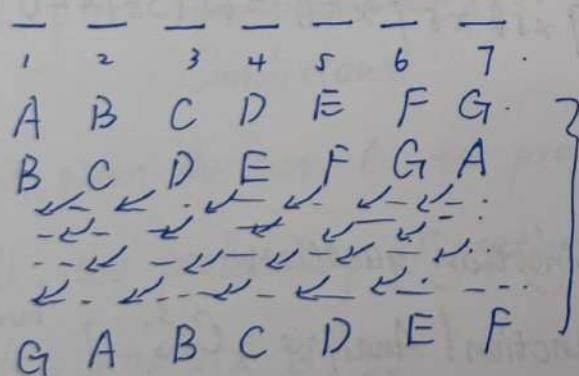 1 2 3 4 5 6 7.
A B C D E F G.
B C D E F G A
G A B C D E F